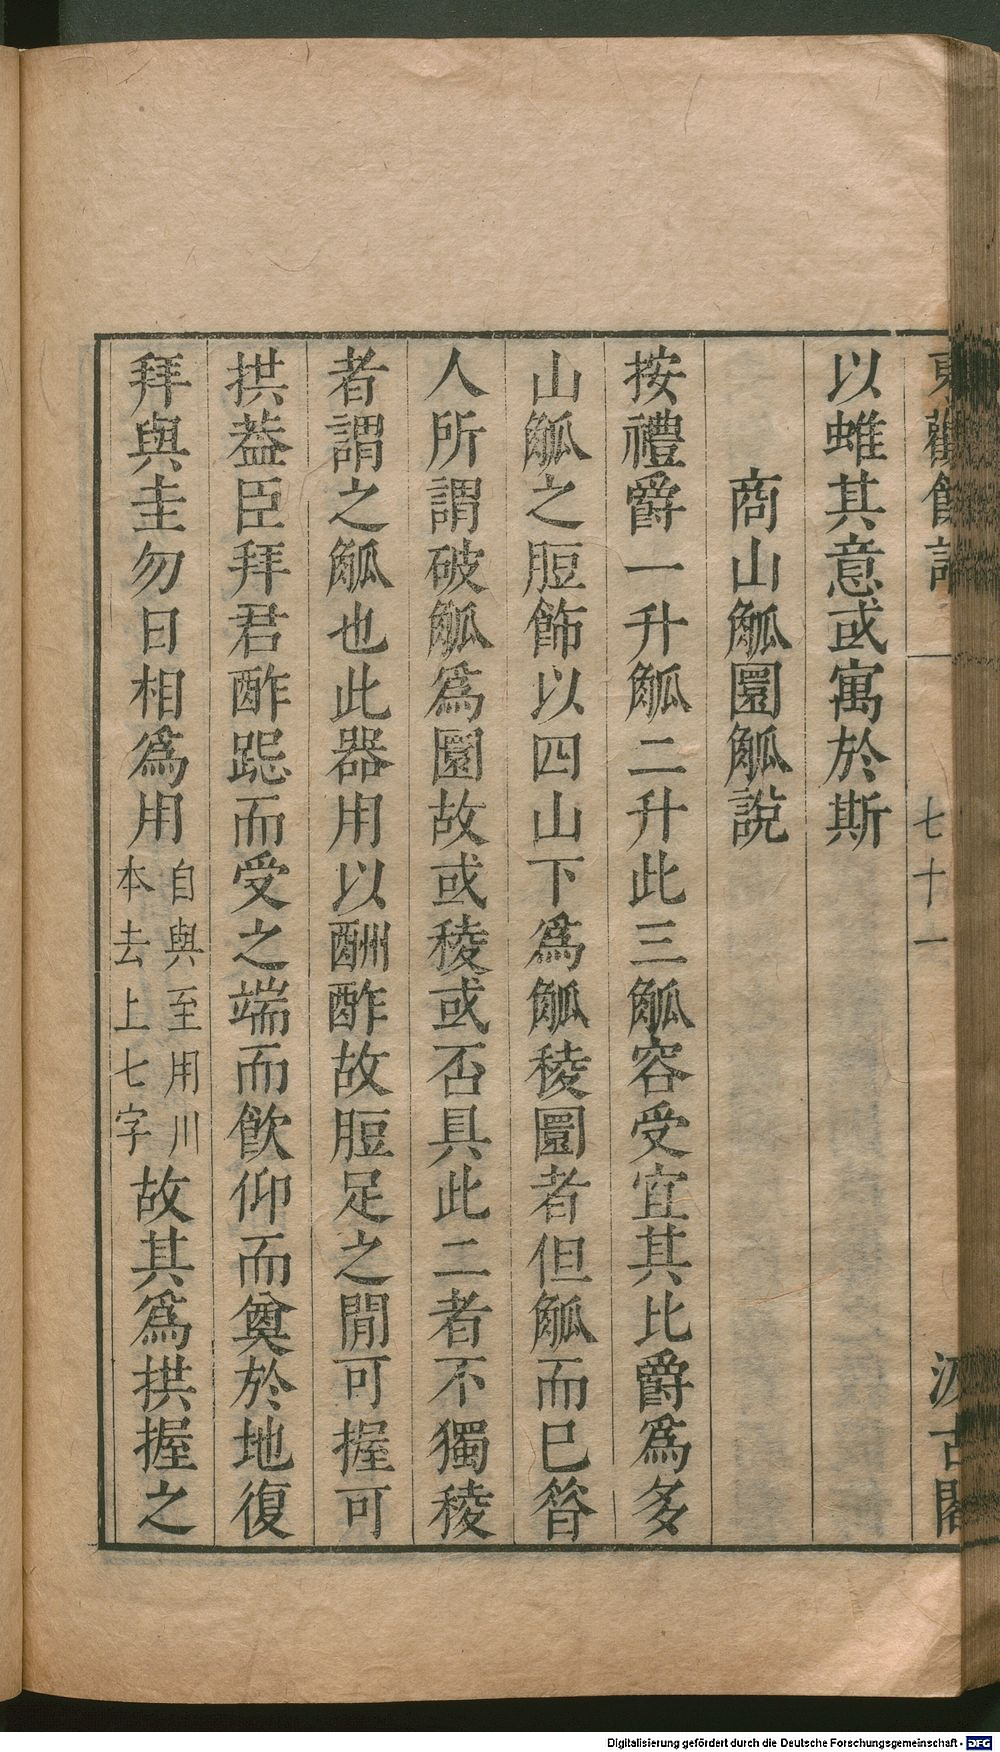 東觀餘論 七十一 汲古閣
以蜼其意或寓於斯
商山觚圜觚說
按禮爵一升觚二升此三觚容受宜其比爵爲多
山觚之脰飾以四山下爲觚稜圜者但觚而已昝
人所謂破觚爲圜故或稜或否具此二者不獨稜
者謂之觚也此器用以酬酢故脰足之間可握可
拱葢臣拜君酢跽而受之端而飮仰而奠於地復
拜與圭勿日相爲用
自與至用川
本去上七字
故其爲拱握之
Digitalisierung gefördert durch die Deutsche Forschungsgemeinschaft - DFG